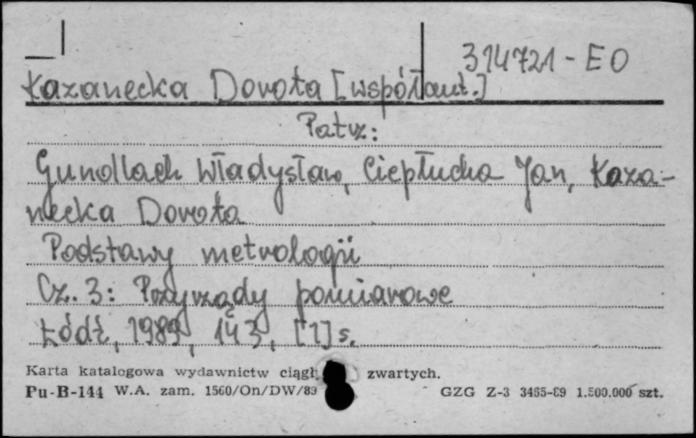 314721-EO
Łazanecka Dorota [współaut.]
Patrz:
Gundlach Władysław, Ciepłucha Jan, Łaza-
necka Dorota
Podstawy metrologii
Cz. 3: Przyrządy pomiarowe
Łódź, 1989, 143, [1] s.
Karta katalogowa wydawnictw ciągł. zwartych.
Pu-B-144 W.A. zam. 1560/On/DW/89 GZG Z-3 3465-89 1.500.000 szt.